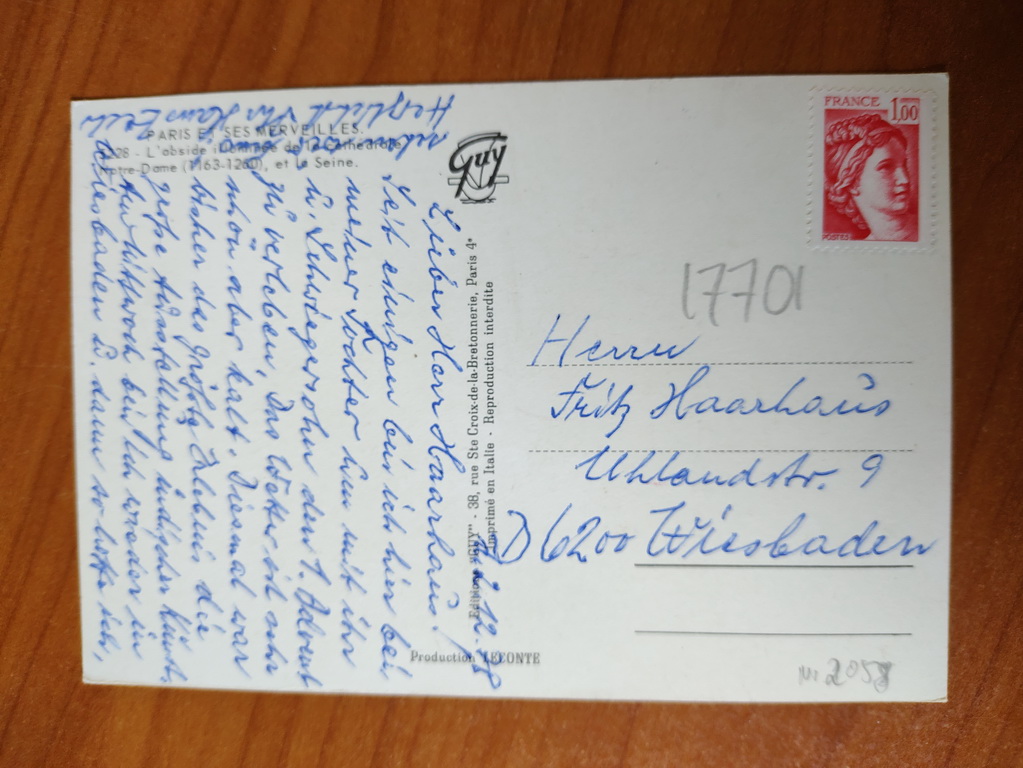 PARIS ET SES MERVEILLES.
228 - L'abside illuminée de la Cathédrale
Notre-Dame (1163-1260), et la Seine.
Guy
FRANCE 1,00
POSTES
17701
Herrn
Fritz Haarhaus
Uhlandstr. 9
D 6200 Wiesbaden
Nr 205
Editions "GUY" - 38, rue Ste Croix-de-la-Bretonnerie, Paris 4e
Imprimé en Italie - Reproduction interdite
Production LECONTE
12.78
Lieber Herr Haarhaus!
Seit einigen bin ich hier bei
meiner Tochter um mit ihr
u. Schwiegersohn den 1. Advent
zu verleben. Das Wetter ist sehr
schön aber kalt. Diesmal war
bisher das größte Erlebnis die
große Ausstellung indischer Kunst.
Am Mittwoch bin ich wieder in
Wiesbaden u. dann so hoffe ich,
Herzlichst Ihr Hans